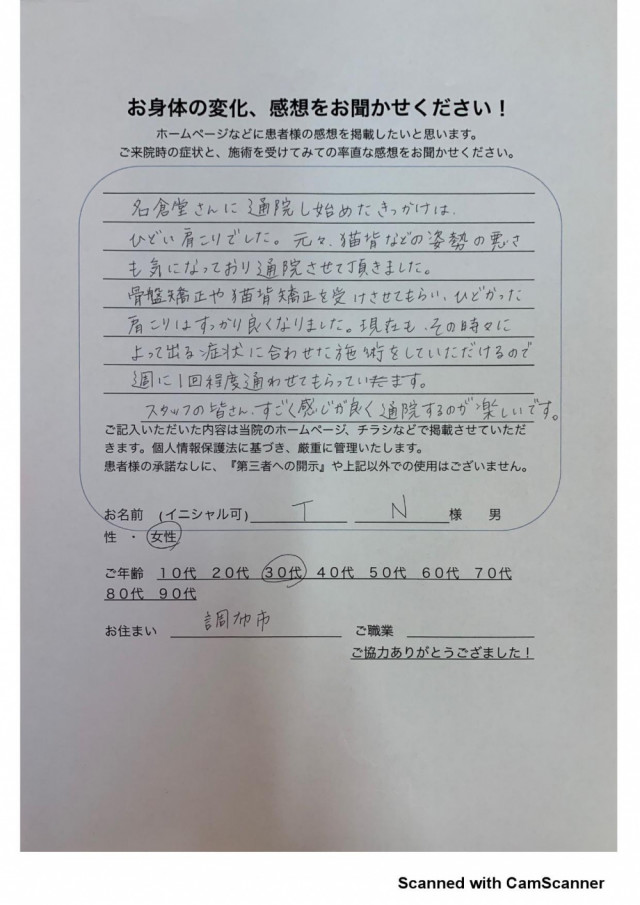 お身体の変化、感想をお聞かせください！
ホームページなどに患者様の感想を掲載したいと思います。
ご来院時の症状と、施術を受けてみての率直な感想をお聞かせください。
名倉堂さんに通院し始めたきっかけは、
ひどい肩こりでした。元々、猫背などの姿勢の悪さ
も気になっており通院させて頂きました。
骨盤矯正や猫背矯正を受けさせてもらい、ひどかった
肩こりはすっかり良くなりました。現在も、その時々に
よって出る症状に合わせた施術をしていただけるので
週に1回程度通わせてもらっています。
スタッフの皆さん、すごく感じが良く通院するのが楽しいです。
ご記入いただいた内容は当院のホームページ、チラシなどで掲載させていただ
きます。個人情報保護法に基づき、厳重に管理いたします。
患者様の承諾なしに、『第三者への開示』や上記以外での使用はございません。
お名前 (イニシャル可) T N 様 男
性 ・ 女性
ご年齢 10代 20代 30代 40代 50代 60代 70代
80代 90代
お住まい 調布市 ご職業
ご協力ありがとうござました！
Scanned with CamScanner